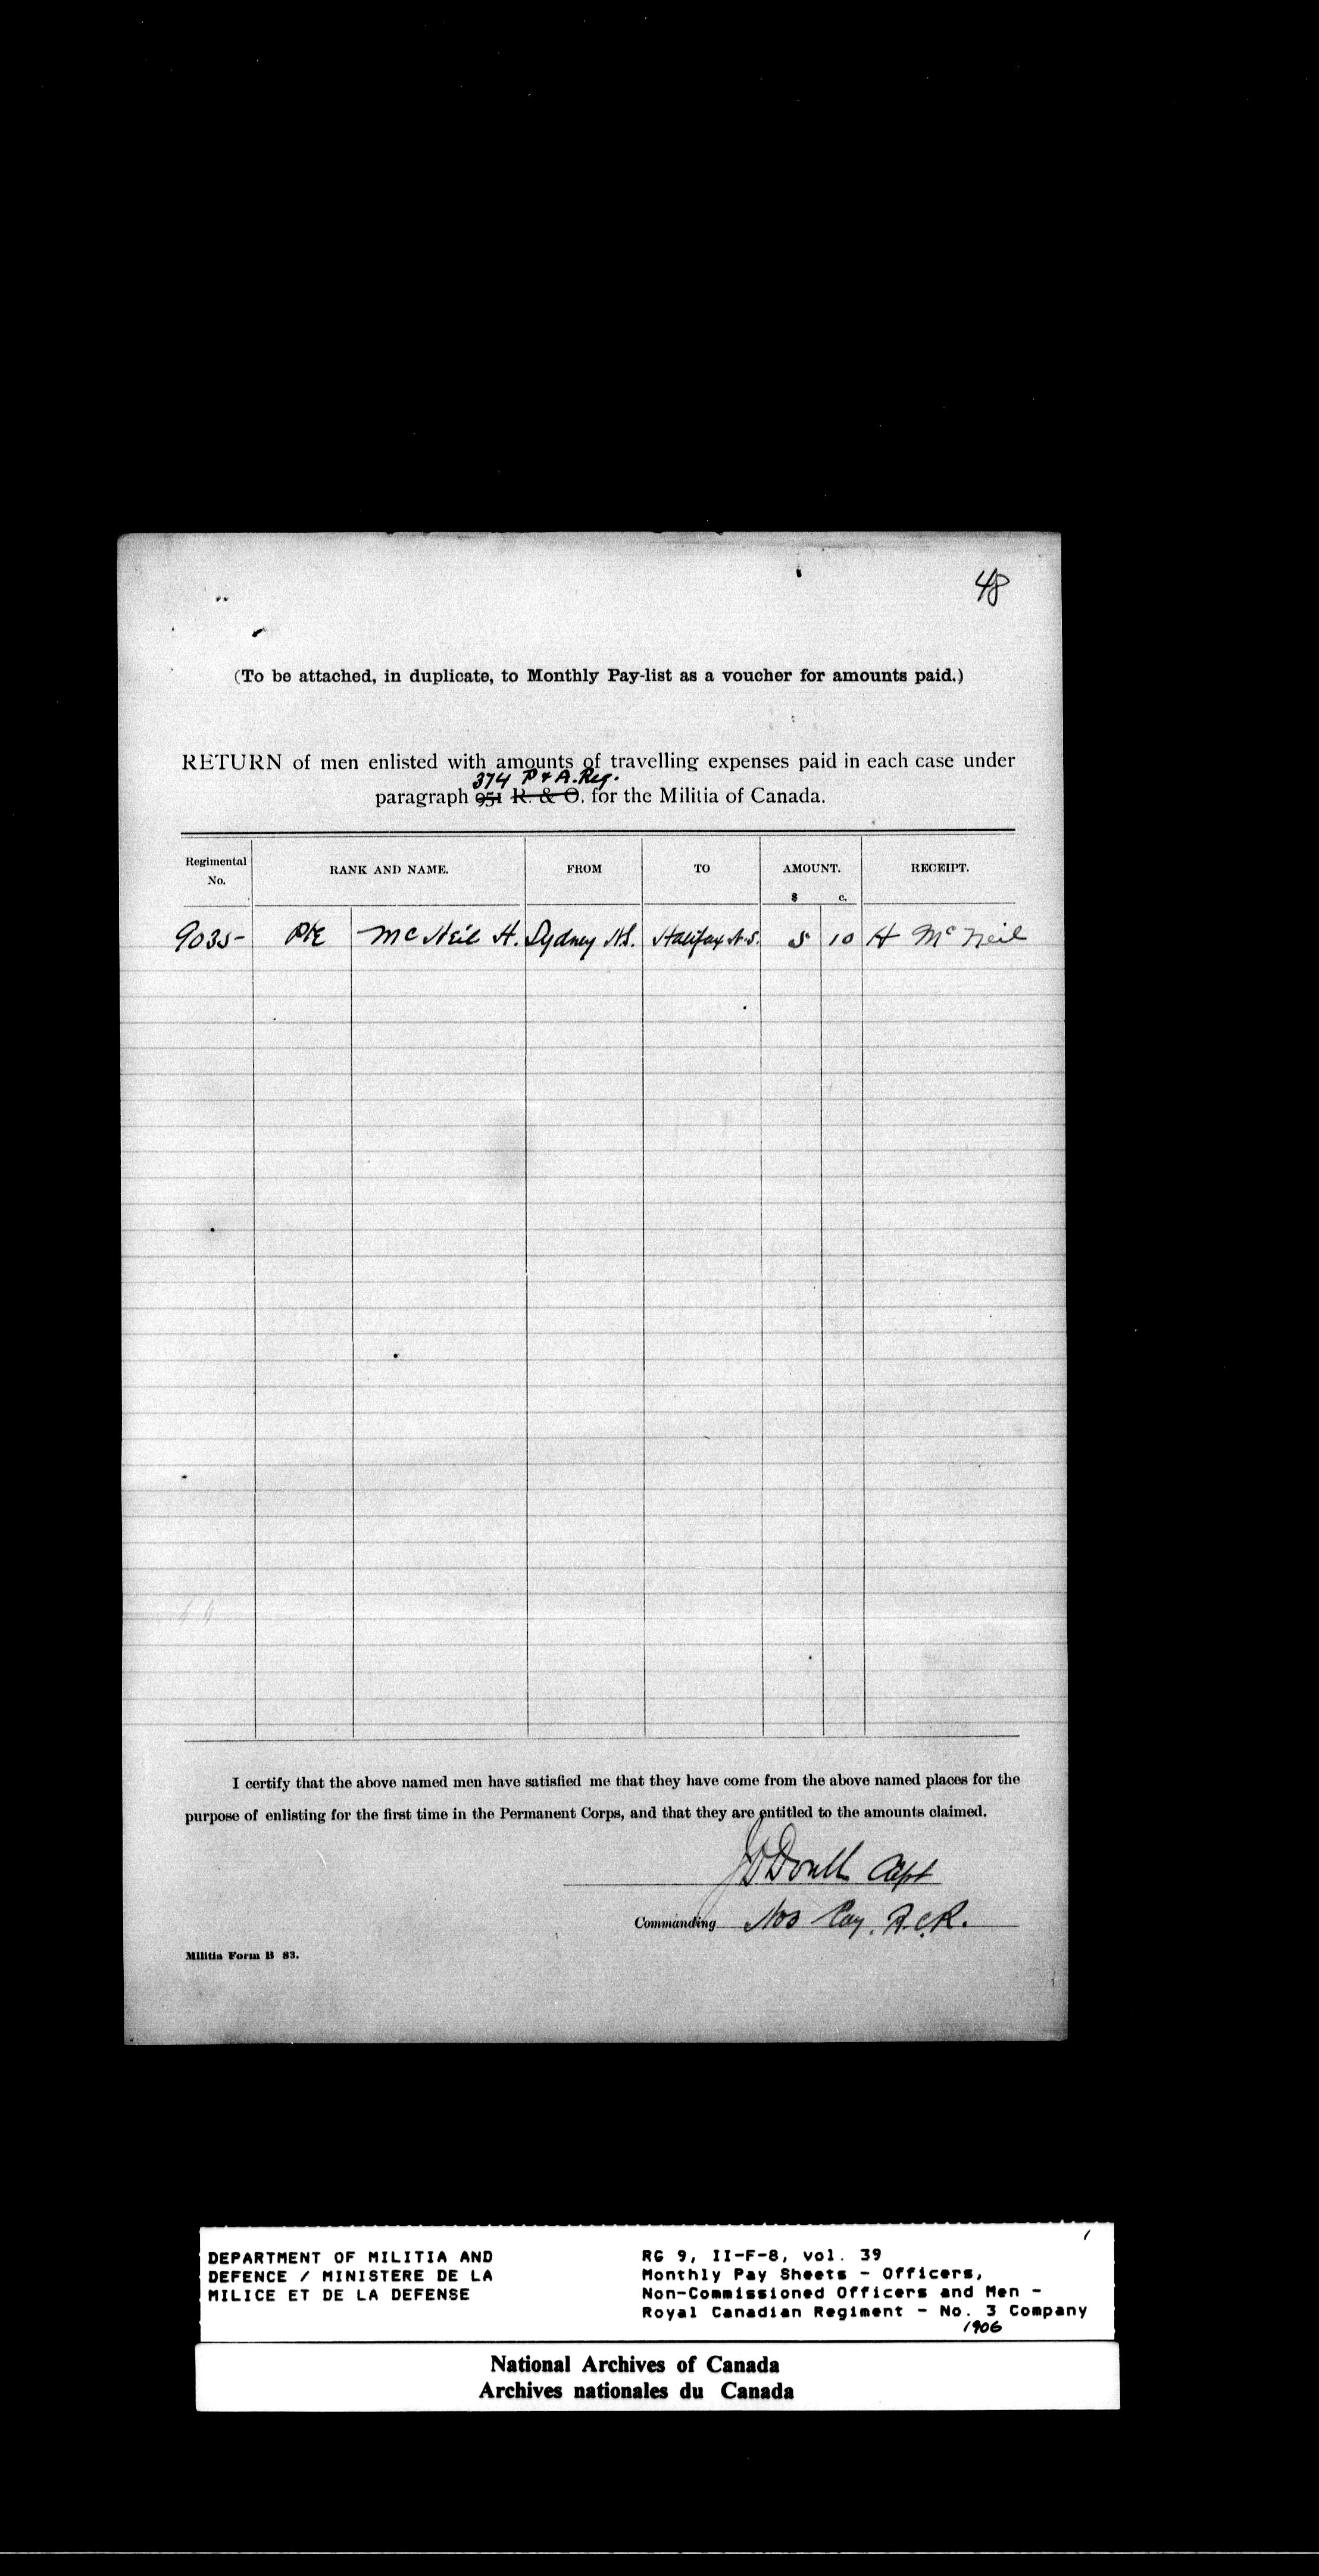 48
(To be attached, in duplicate, to Monthly Pay-list as a voucher for amounts paid.)
RETURN of men enlisted with amounts of travelling expenses paid in each case under
374 P & A. Reg.
paragraph 951 R. & O. for the Militia of Canada.
Regimental No. RANK AND NAME. FROM TO AMOUNT. RECEIPT.
$ c.
9035 Pte McNeil H. Sydney N.S. Halifax N.S. 5 10 H McNeil
I certify that the above named men have satisfied me that they have come from the above named places for the
purpose of enlisting for the first time in the Permanent Corps, and that they are entitled to the amounts claimed.
Doull Capt
Commanding No3 Coy. R.C.R.
Militia Form B 83.
1
DEPARTMENT OF MILITIA AND
DEFENCE / MINISTERE DE LA
MILICE ET DE LA DEFENSE
RG 9, II-F-8, vol. 39
Monthly Pay Sheets - Officers,
Non-Commissioned Officers and Men -
Royal Canadian Regiment - No. 3 Company
1906
National Archives of Canada
Archives nationales du Canada